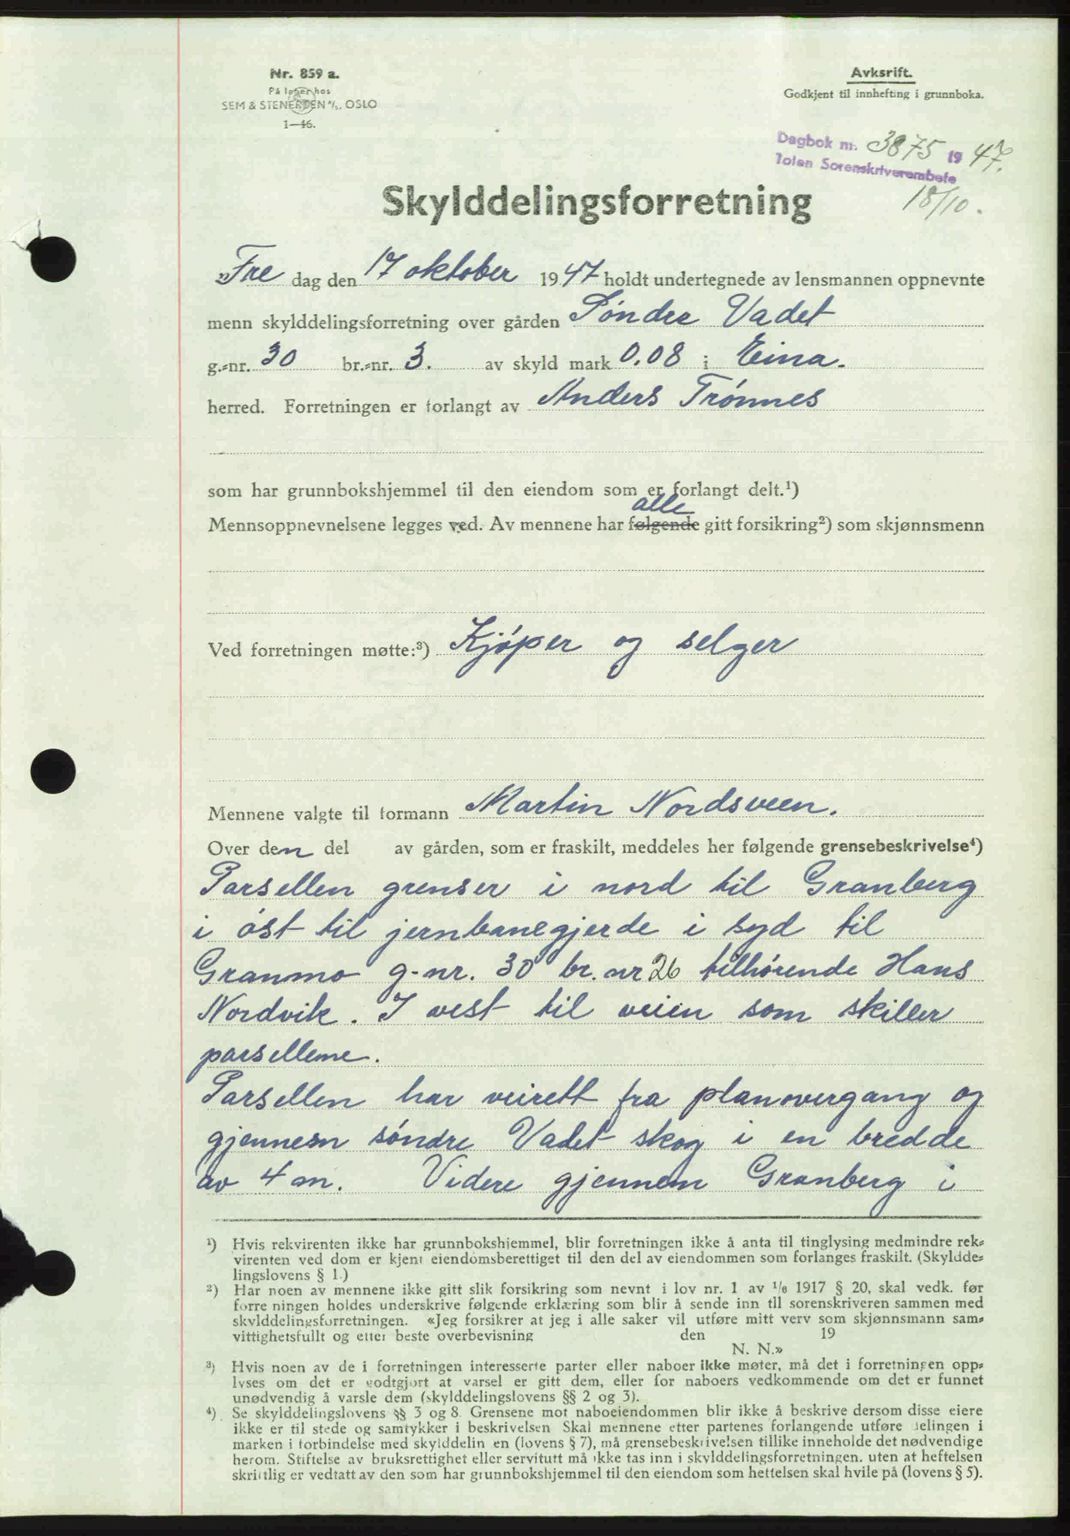 Nr. 859 a.
På lager hos
SEM & STENERSEN A/S. OSLO
1—46.
Avksrift.
Godkjent til innhefting i grunnboka.
Dagbok nr. 3875 1947.
Toten Sorenskriverembete
18/10.
Skylddelingsforretning
Fre dag den 17 oktober 1947 holdt undertegnede av lensmannen oppnevnte
menn skylddelingsforretning over gården Søndre Vadet
g.-nr. 30 br.-nr. 3. av skyld mark 0.08 i Eina.
herred. Forretningen er forlangt av Anders Trønnes
som har grunnbokshjemmel til den eiendom som er forlangt delt.¹)
alle
Mennsoppnevnelsene legges ved. Av mennene har følgende gitt forsikring²) som skjønnsmenn
Ved forretningen møtte:³) Kjøper og selger
Mennene valgte til formann Martin Nordsveen.
Over den del av gården, som er fraskilt, meddeles her følgende grensebeskrivelse⁴)
Parsellen grenser i nord til Granberg
i øst til jernbanegjerde i syd til
Granmo g-nr. 30 br. nr 26 tilhørende Hans
Nordvik. I vest til veien som skiller
parsellene.
Parsellen har veirett fra planovergang og
gjennem søndre Vadet skog i en bredde
av 4 m. Videre gjennem Granberg i
¹) Hvis rekvirenten ikke har grunnbokshjemmel, blir forretningen ikke å anta til tinglysing medmindre rek-
virenten ved dom er kjent eiendomsberettiget til den del av eiendommen som forlanges fraskilt. (Skyldde-
lingslovens § 1.)
²) Har noen av mennene ikke gitt slik forsikring som nevnt i lov nr. 1 av 1/6 1917 § 20, skal vedk. før
forretningen holdes underskrive følgende erklæring som blir å sende inn til sorenskriveren sammen med
skylddelingsforretningen. «Jeg forsikrer at jeg i alle saker vil utføre mitt verv som skjønnsmann sam-
vittighetsfullt og etter beste overbevisning den 19
N. N.»
³) Hvis noen av de i forretningen interesserte parter eller naboer ikke møter, må det i forretningen opp-
lyses om det er godtgjort at varsel er gitt dem, eller for naboers vedkommende om det er funnet
unødvendig å varsle dem (skylddelingslovens §§ 2 og 3).
⁴) Se skylddelingslovens §§ 3 og 8. Grensene mot naboeiendommen blir ikke å beskrive dersom disse eiere
ikke er til stede og samtykker i beskrivelsen Skal mennene etter partenes forlangende utføre delingen i
marken i forbindelse med skylddelingen (lovens § 7), må grensebeskrivelsen tillike inneholde det nødvendige
herom. Stiftelse av bruksrettighet eller servitutt må ikke tas inn i skylddelingsforretningen, uten at heftelsen
skriftlig er vedtatt av den som har grunnbokshjemmel til den eiendom som heftelsen skal hvile på (lovens § 5).